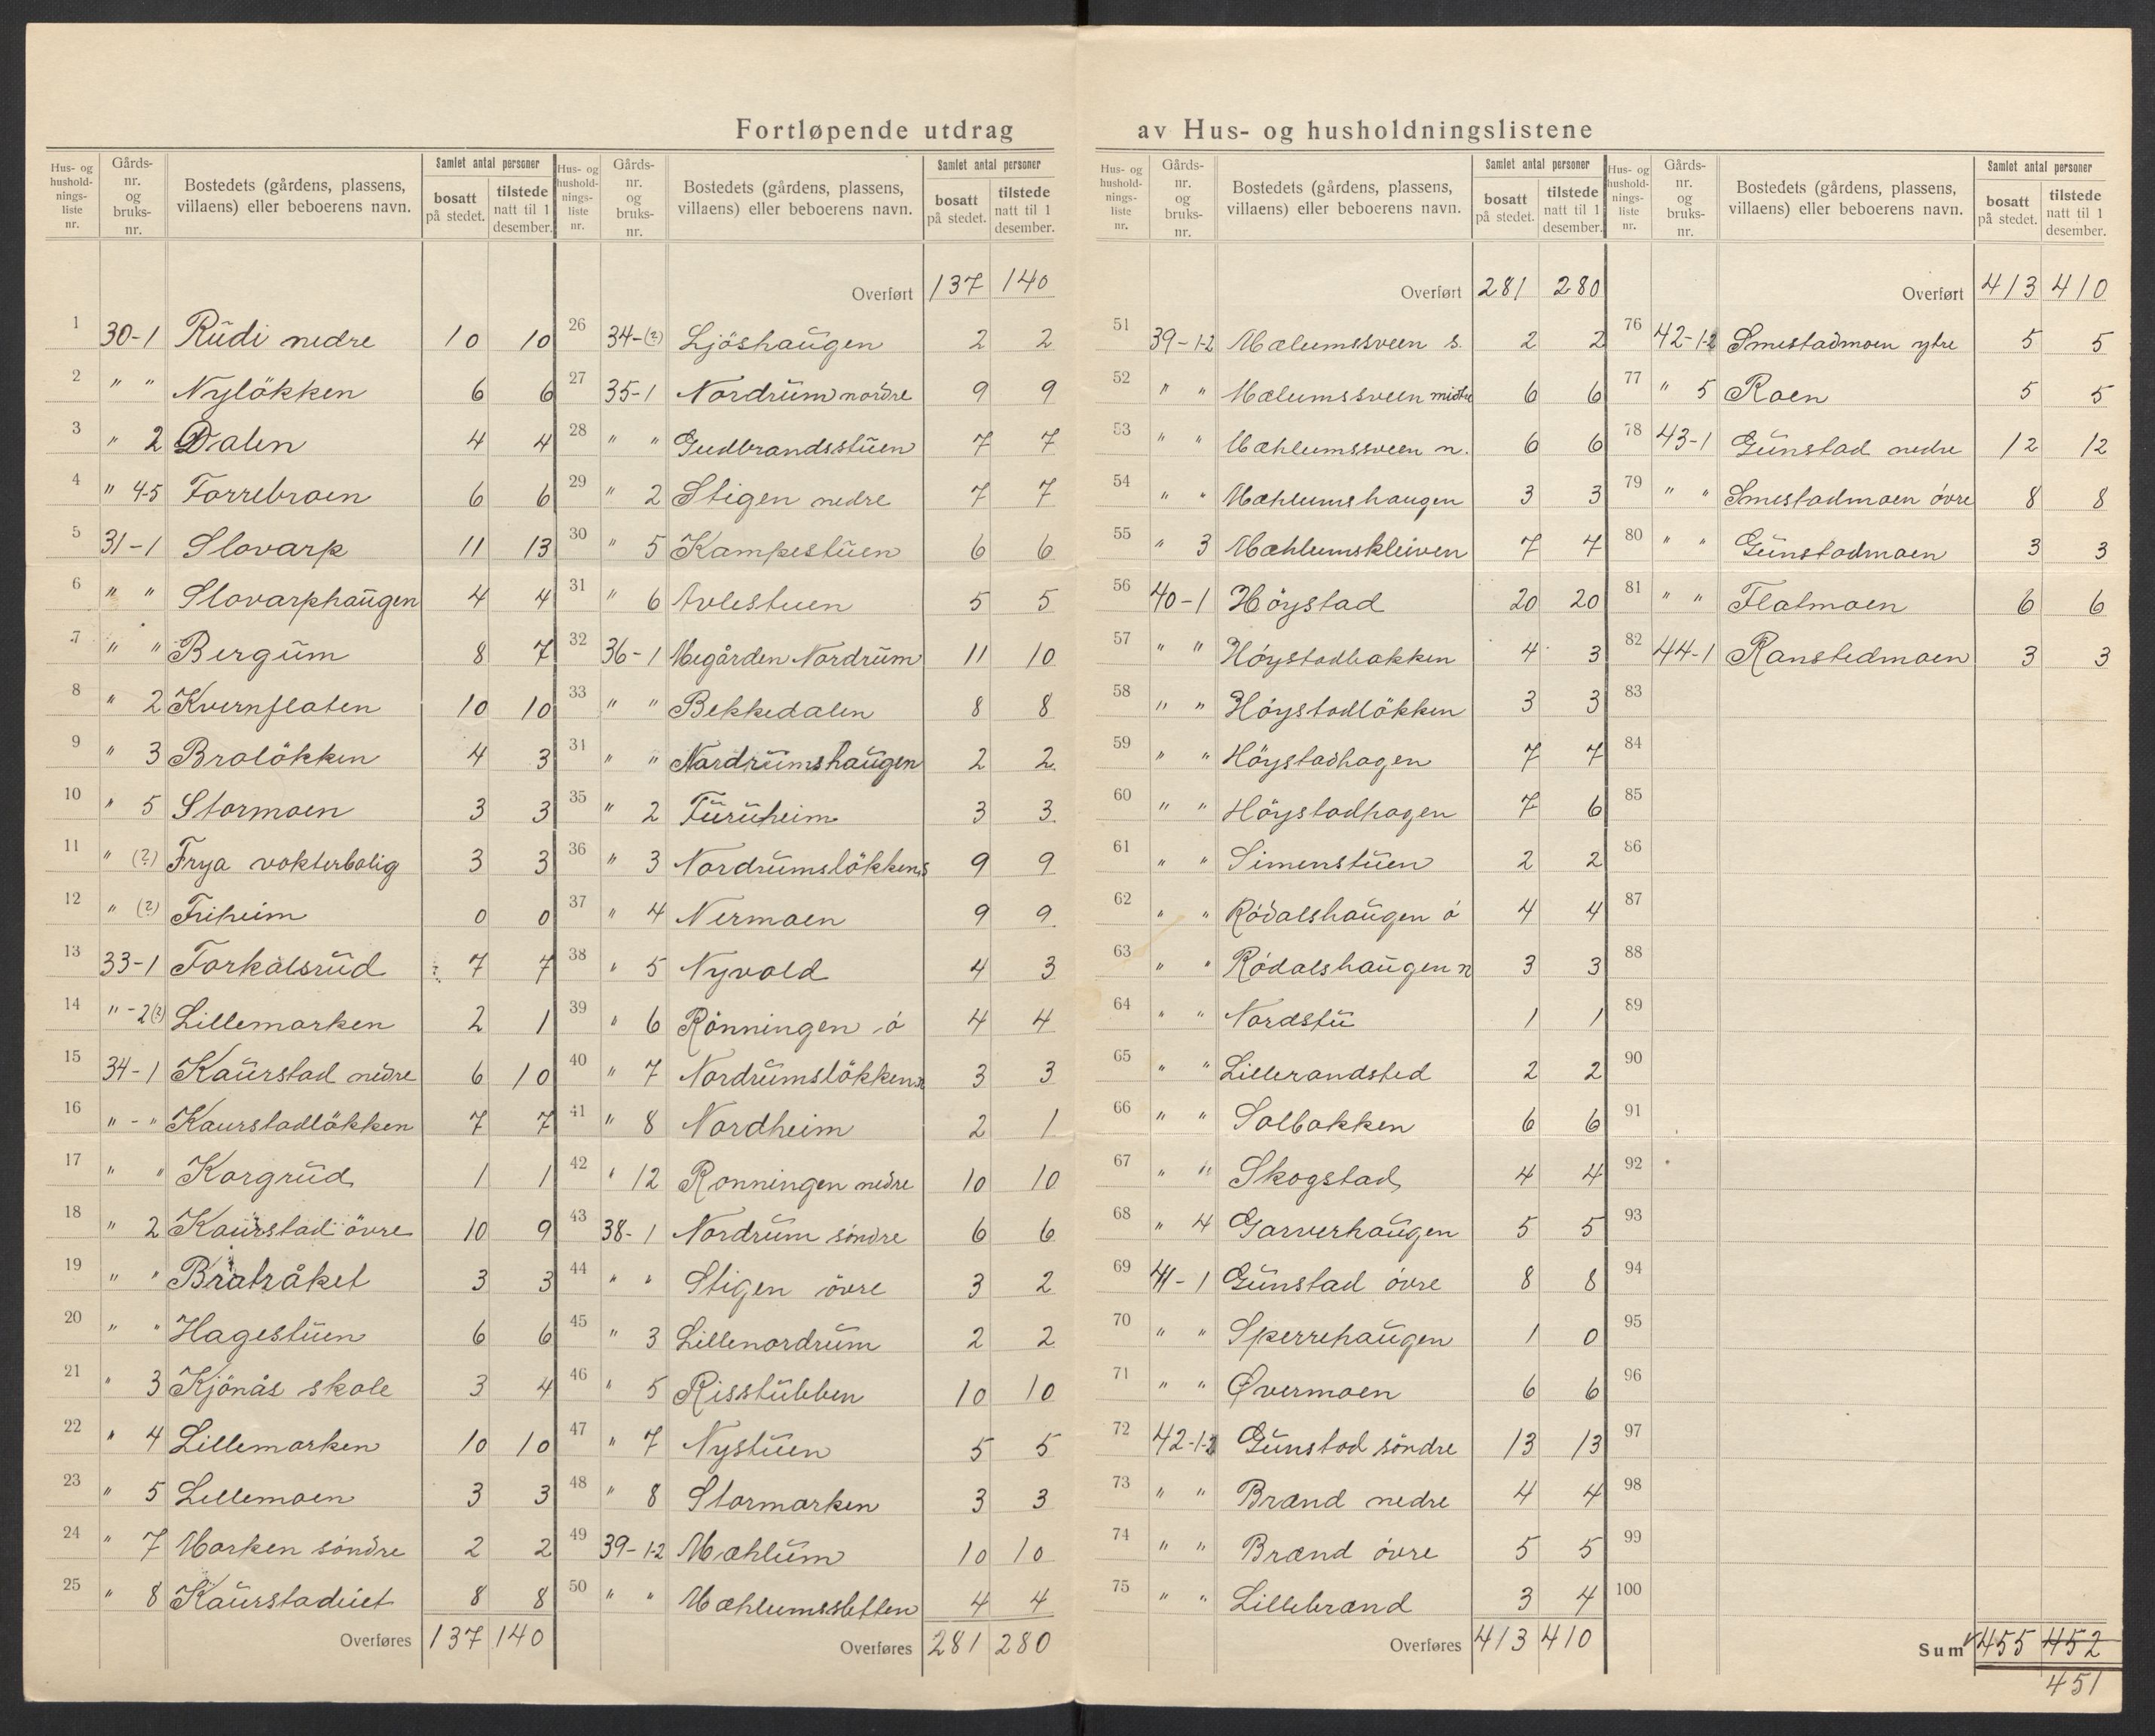 Fortløpende utdrag av Hus- og husholdningslistene
Hus- og hushold-nings-liste nr. Gårds-nr. og bruks-nr. Bostedets (gårdens, plassens, villaens) eller beboerens navn. Samlet antal personer bosatt på stedet. tilstede natt til 1 desember.
1 30-1 Rudi nedre 10 10
2 " " Nyløkken 6 6
3 " 2 Dalen 4 4
4 " 4-5 Forrebroen 6 6
5 31-1 Slovarp 11 13
6 " " Slovarphaugen 4 4
7 " " Bergum 8 7
8 " 2 Kvernflaten 10 10
9 " 3 Braløkken 4 3
10 " 5 Stormoen 3 3
11 " (?) Frya vokterbolig 3 3
12 " (?) Friheim 0 0
13 33-1 Forkalsrud 7 7
14 " - 2(?) Lillemarken 2 1
15 34-1 Kaurstad nedre 6 10
16 " - " Kaurstadløkken 7 7
17 " " Korgrud 1 1
18 " 2 Kaurstad øvre 10 9
19 " " Bratråket 3 3
20 " " Hagestuen 6 6
21 " 3 Kjönås skole 3 4
22 " 4 Lillemarken 10 10
23 " 5 Lillemoen 3 3
24 " 7 Marken söndre 2 2
25 " 8 Kaurstadeiet 8 8
Overføres 137 140
Hus- og hushold-nings-liste nr. Gårds-nr. og bruks-nr. Bostedets (gårdens, plassens, villaens) eller beboerens navn. Samlet antal personer bosatt på stedet. tilstede natt til 1 desember.
Overført 137 140
26 34-(?) Ljöshaugen 2 2
27 35-1 Nordrum nordre 9 9
28 " " Gudbrandsstuen 7 7
29 " 2 Stigen nedre 7 7
30 " 5 Kampestuen 6 6
31 " 6 Avlestuen 5 5
32 36-1 Megården Nordrum 11 10
33 " " Bekkedalen 8 8
31 " " Nordrumshaugen 2 2
35 " 2 Furuheim 3 3
36 " 3 Nordrumsløkken s 9 9
37 " 4 Nermoen 9 9
38 " 5 Nyvold 4 3
39 " 6 Rönningen ö 4 4
40 " 7 Nordrumslökken n 3 3
41 " 8 Nordheim 2 1
42 " 12 Ronningen nedre 10 10
43 38-1 Nordrum söndre 6 6
44 " " Stigen övre 3 2
45 " 3 Lillenordrum 2 2
46 " 5 Risstubben 10 10
47 " 7 Nystuen 5 5
48 " 8 Stormarken 3 3
49 39-1-2 Mæhlum 10 10
50 " " Mæhlumssletten 4 4
Overføres 281 280
Hus- og hushold-nings-liste nr. Gårds-nr. og bruks-nr. Bostedets (gårdens, plassens, villaens) eller beboerens navn. Samlet antal personer bosatt på stedet. tilstede natt til 1 desember.
Overført 281 280
51 39-1-2 Mælumssveen s. 2 2
52 " " Mælumssveen midtre 6 6
53 " " Mæhlumssveen n. 6 6
54 " " Mæhlumshaugen 3 3
55 " 3 Mæhlumskleiven 7 7
56 40-1 Höystad 20 20
57 " " Höystadbakken 4 3
58 " " Höystadlökken 3 3
59 " " Höystadhagen 7 7
60 " " Höystadhagen 7 6
61 " " Simenstuen 2 2
62 " " Rödalshaugen ö 4 4
63 " " Rödalshaugen n 3 3
64 " " Nordstu 1 1
65 " " Lillerandsted 2 2
66 " " Solbakken 6 6
67 " " Skogstad 4 4
68 " 4 Garverhaugen 5 5
69 41-1 Gunstad övre 8 8
70 " " Sperrehaugen 1 0
71 " " Øvermoen 6 6
72 42-1-2 Gunstad söndre 13 13
73 " " Brænd nedre 4 4
74 " " Brænd övre 5 5
75 " " Lillebrænd 3 4
Overføres 413 410
Hus- og hushold-nings-liste nr. Gårds-nr. og bruks-nr. Bostedets (gårdens, plassens, villaens) eller beboerens navn. Samlet antal personer bosatt på stedet. tilstede natt til 1 desember.
Overført 413 410
76 42-1-2 Smestadmoen ytre 5 5
77 " 5 Roen 5 5
78 43-1 Gunstad nedre 12 12
79 " " Smestadmoen övre 8 8
80 " " Gunstadmoen 3 3
81 " " Flatmoen 6 6
82 44-1 Ranstedmoen 3 3
83
84
85
86
87
88
89
90
91
92
93
94
95
96
97
98
99
100
Sum 455 452
451